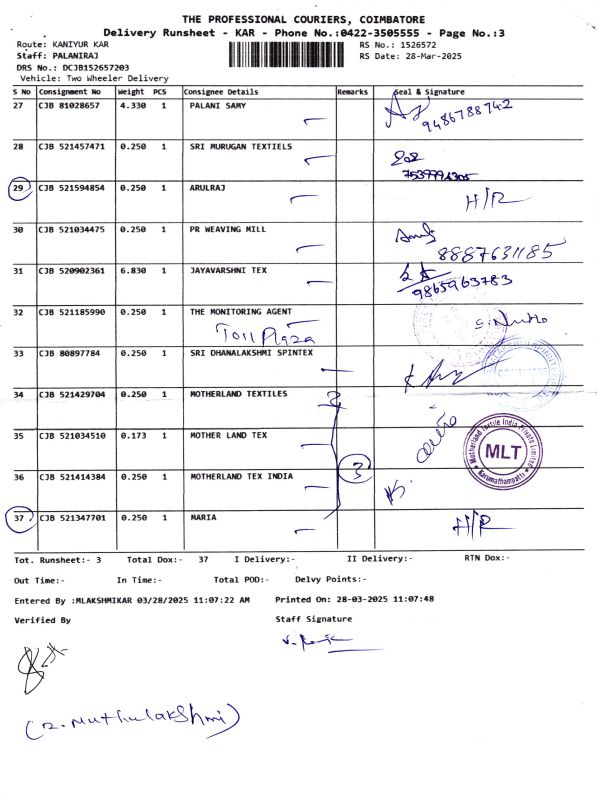 THE PROFESSIONAL COURIERS, COIMBATORE
Delivery Runsheet - KAR - Phone No.:0422-3505555 - Page No.:3
Route: KANIYUR KAR RS No.: 1526572
Staff: PALANIRAJ RS Date: 28-Mar-2025
DRS No.: DCJB152657203
Vehicle: Two Wheeler Delivery
S No Consignment No Weight PCS Consignee Details Remarks Seal & Signature
27 CJB 81028657 4.330 1 PALANI SAMY
9486788742
28 CJB 521457471 0.250 1 SRI MURUGAN TEXTIELS
29 CJB 521594854 0.250 1 ARULRAJ
H/R
30 CJB 521034475 0.250 1 PR WEAVING MILL
8887631185
31 CJB 520902361 6.830 1 JAYAVARSHNI TEX
9865963783
32 CJB 521185990 0.250 1 THE MONITORING AGENT
Toll Plaza
33 CJB 80897784 0.250 1 SRI DHANALAKSHMI SPINTEX
34 CJB 521429704 0.250 1 MOTHERLAND TEXTILES
35 CJB 521034510 0.173 1 MOTHER LAND TEX
Motherland Textile India Private Limited
MLT
Karumathampatti
36 CJB 521414384 0.250 1 MOTHERLAND TEX INDIA 3
37 CJB 521347701 0.250 1 MARIA
H/R
Tot. Runsheet:- 3 Total Dox:- 37 I Delivery:- II Delivery:- RTN Dox:-
Out Time:- In Time:- Total POD:- Delvy Points:-
Entered By :MLAKSHMIKAR 03/28/2025 11:07:22 AM Printed On: 28-03-2025 11:07:48
Verified By Staff Signature
(R. Muthulakshmi)